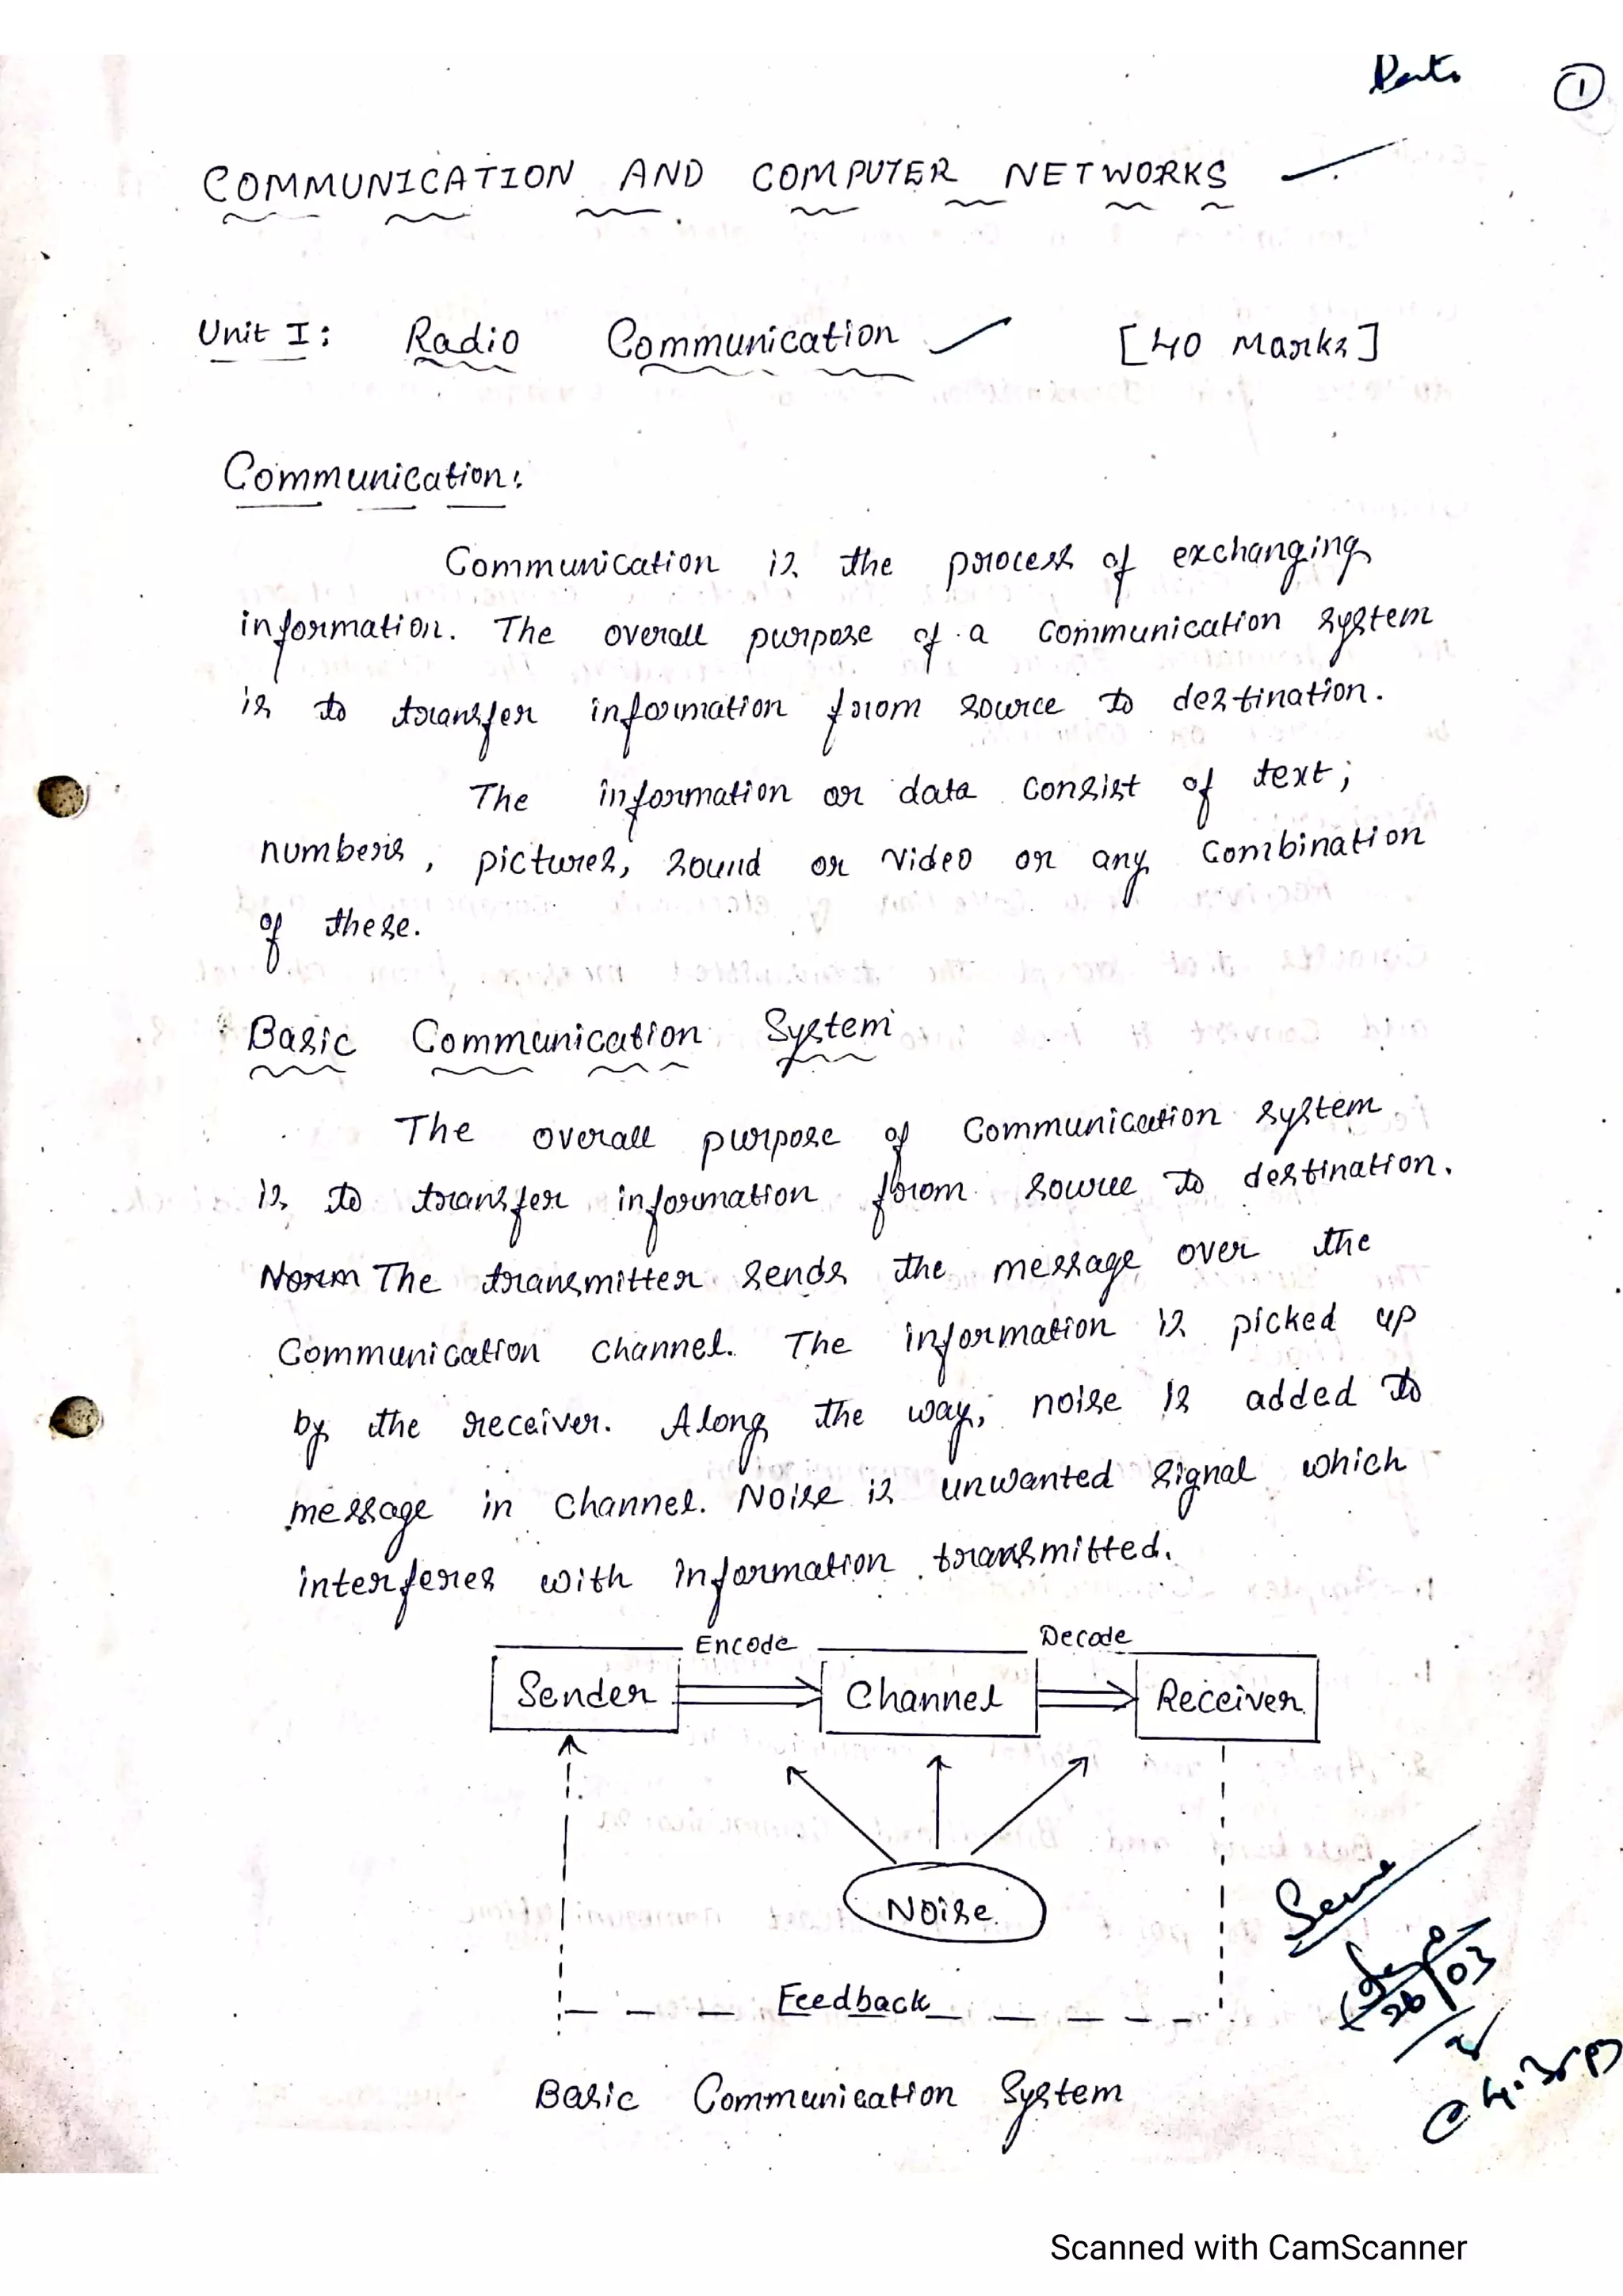 ①
COMMUNICATION AND COMPUTER NETWORKS
Unit I: Radio Communication [40 Marks]
Communication:
Communication is the process of exchanging
information. The overall purpose of a communication system
is to transfer information from source to destination.
The information or data consist of text;
numbers, pictures, sound or video or any combination
of these.
Basic Communication System
The overall purpose of communication system
is to transfer information from source to destination.
Norm The transmitter sends the message over the
communication channel. The information is picked up
by the receiver. Along the way, noise is added to
message in channel. Noise is unwanted signal which
interferes with information transmitted.
Encode Decode
Sender Channel Receiver
Noise
Feedback
26/03
Basic Communication System
Scanned with CamScanner